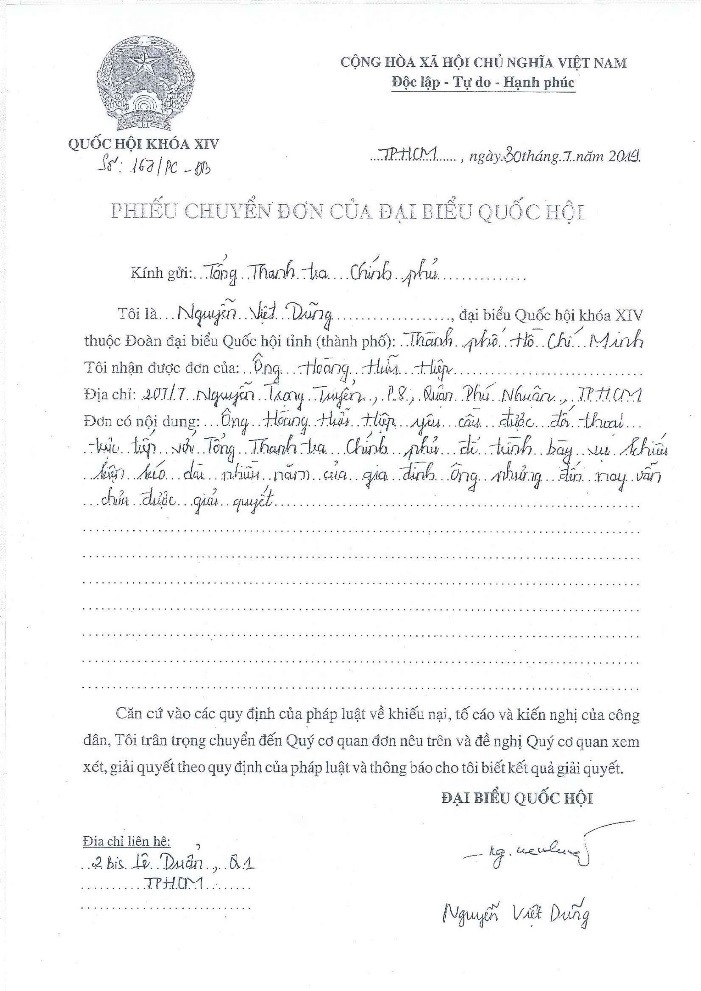 CỘNG HÒA XÃ HỘI CHỦ NGHĨA VIỆT NAM
Độc lập - Tự do - Hạnh phúc
QUỐC HỘI KHÓA XIV
Số: 167/PC - ĐB
TPHCM, ngày 30 tháng 7 năm 2019
PHIẾU CHUYỂN ĐƠN CỦA ĐẠI BIỂU QUỐC HỘI
Kính gửi: Tổng Thanh tra Chính phủ
Tôi là Nguyễn Việt Dũng, đại biểu Quốc hội khóa XIV
thuộc Đoàn đại biểu Quốc hội tỉnh (thành phố): Thành phố Hồ Chí Minh
Tôi nhận được đơn của: Ông Hoàng Hữu Hiệp
Địa chỉ: 207/7 Nguyễn Trọng Tuyển, P.8, Quận Phú Nhuận, TPHCM
Đơn có nội dung: Ông Hoàng Hữu Hiệp yêu cầu được đối thoại
trực tiếp với Tổng Thanh tra Chính phủ để trình bày vụ khiếu
kiện kéo dài nhiều năm của gia đình ông nhưng đến nay vẫn
chưa được giải quyết
Căn cứ vào các quy định của pháp luật về khiếu nại, tố cáo và kiến nghị của công
dân, Tôi trân trọng chuyển đến Quý cơ quan đơn nêu trên và đề nghị Quý cơ quan xem
xét, giải quyết theo quy định của pháp luật và thông báo cho tôi biết kết quả giải quyết.
ĐẠI BIỂU QUỐC HỘI
Địa chỉ liên hệ:
2 Bis Lê Duẩn, Q1
TPHCM
Nguyễn Việt Dũng